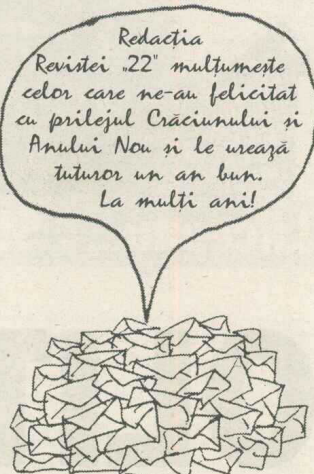 Redacția
Revistei „22" mulțumește
celor care ne-au felicitat
cu prilejul Crăciunului și
Anului Nou și le urează
tuturor un an bun.
La mulți ani!